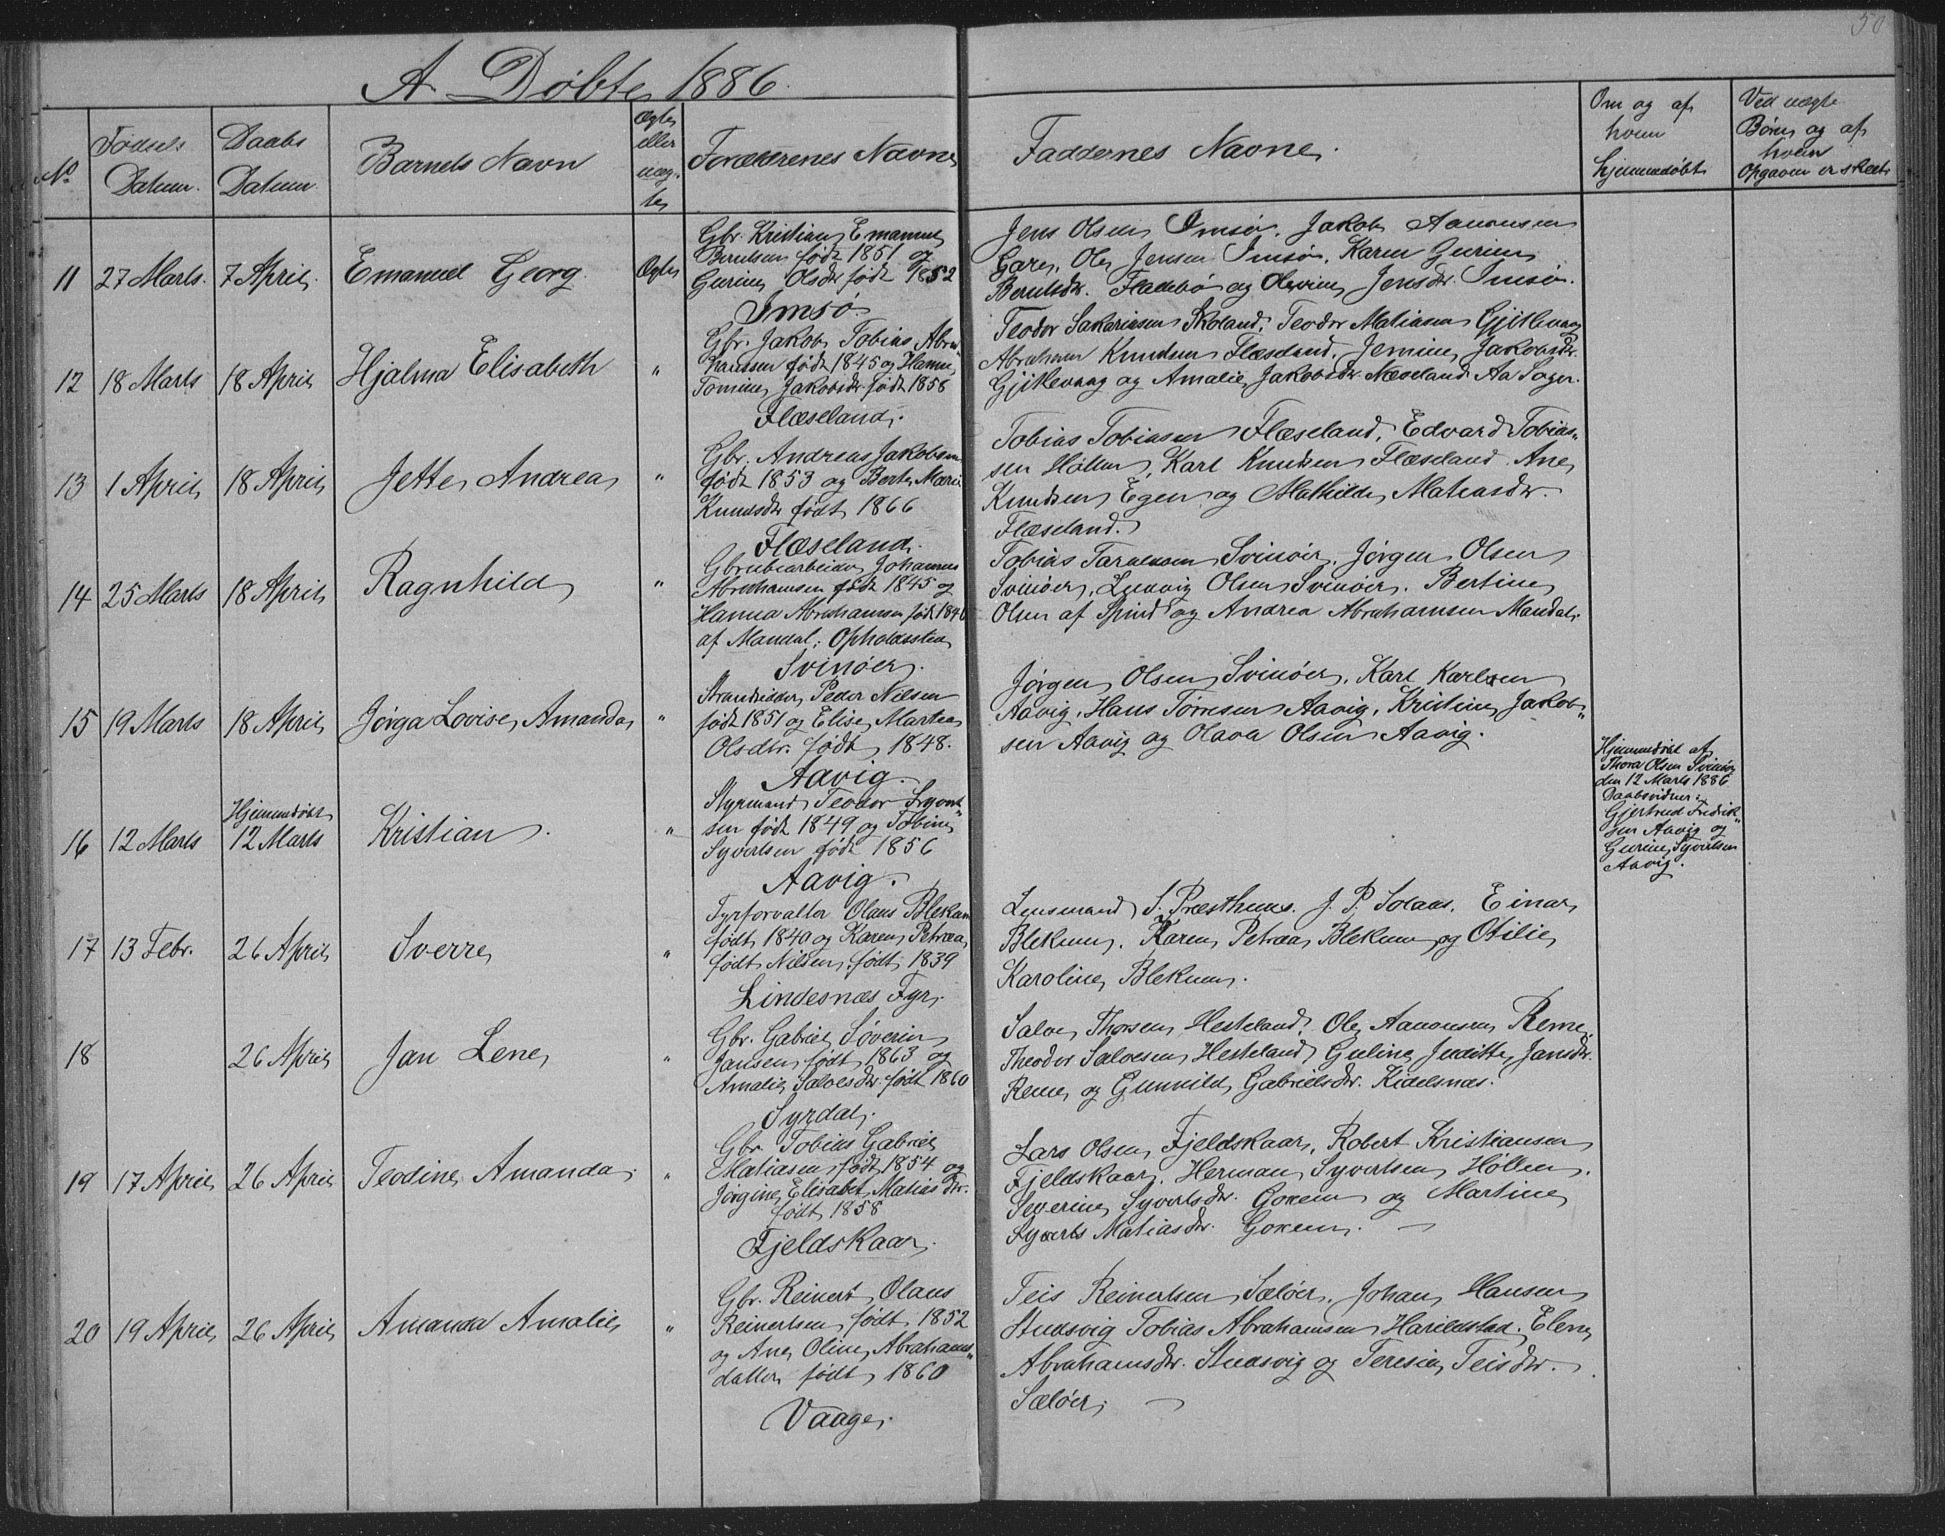 50
A Døbte 1886.
No
Fødsels Datum.
Daabs Datum
Barnets Navn
Ægte eller uæg. te
Forældrenes Navne
Faddernes Navne.
Om og af hvem hjemmedøbt
Ved uægte Børn og af hvem Opgaven er skeet
11 27 Marts. 7 April. Emanuel Georg. Ægte
Gbr. Kristian Emanuel
Berntsen født 1851 og
Gurine Olsdr født 1852
Imsø.
Jens Olsen Imsø. Jakob Aanonsen
Gare, Ole Jensen Imsø. Karen Gurine
Berntsdr. Fladebø og Olevine Jensdr. Imsø.
12 18 Marts 18 April Hjalma Elisabeth "
Gbr. Jakob Tobias Abra"
hamsen født 1845 og Hanne
Tomine Jakobsdr født 1858
Flæseland.
Teodor Sakariasen Skoland. Teodor Matiasen Gjitlevaag
Abraham Knudsen Flæseland. Jemine Jakobsdr.
Gjitlevaag og Amalie Jakobsdr. Næveland Aa Sogn.
13 1 April 18 April Jette Andrea "
Gbr. Andreas Jakobsen
født 1853 og Berte Marie
Knudsdr født 1866
Flæseland.
Tobias Tobiasen Flæseland, Edvard Tobias"
sen Høllen, Karl Knudsen Flæseland. Ane
Knudsen Egen og Mathilde Matiasdr.
Flæseland.
14 25 Marts 18 April Ragnhild "
Grubearbeider Johannes
Abrahamsen født 1845 og
Hanna Abrahamsen født 184
af Mandal; Opholdssted
Svinøer.
Tobias Tarvesen Svinøer. Jørgen Olsen
Svinøer, Ludvig Olsen Svinøer. Bertine
Olsen af Spind og Andrea Abrahamsen Mandal.
15 19 Marts 18 April Jørga Lovise Amanda "
Strandsidder Peder Nilsen
født 1851 og Elise Martea
Olsdtr. født 1848.
Aavig.
Jørgen Olsen Svinøer, Karl Karlsen
Aavig, Hans Torresen Aavig, Kristine Jakob"
sen Aavig og Olava Olsen Aavig.
16 12 Marts Hjemmedøbt 12 Marts Kristian. "
Styrmand Teodor Syvert"
sen født 1849 og Tobine
Syvertsen født 1856
Aavig.
Hjemmedøbt af
Thora Olsen Svinøer
den 12 Marts 1886
Daabsvidner:
Gjertrud Fredrik"
sen Aavig og
Gurine Syvertsen
Aavig.
17 13 Febr. 26 April Sverre "
Fyrforvalter Olaus Blekum
født 1840 og Karen Petræa
født Nilsen født 1839
Lindesnæs Fyr.
Lensmand S. Præsthus. J. P. Solaas. Einar
Blekum. Karen Petræa Blekum og Otilie
Karoline Blekum.
18 26 April Jan Lene "
Gbr. Gabriel Søverin
Jansen født 1863 og
Amalie Salvesdr. født 1860
Syrdal.
Salve Thorsen Hesteland. Ole Aanonsen Reme.
Theodor Salvesen Hesteland Guline Juditte Jansdr.
Reme og Gunvild Gabrielsdr. Kidelsnæs.
19 17 April 26 April Teodine Amanda. "
Gbr. Tobias Gabriel
Matiasen født 1854 og
Jørgine Elisabet Matiasdr.
født 1858
Fjeldskaar.
Lars Olsen Fjeldskaar, Robert Kristiansen
Fjeldskaar, Herman Syvertsen Høllen.
Severine Syvertsdr. Goxem og Martine
Syverts Matiasdr. Goxem. —
20 19 April 26 April Amanda Amalie "
Gbr. Reinert Olaus
Reinertsen født 1852
og Ane Oline Abrahams"
datter født 1860
Vaage.
Teis Reinertsen Sæløer. Johan Hansen
Studsvig Tobias Abrahamsen Harildstad. Elene
Abrahamsdr. Studsvig og Teresie Teisdr.
Sæløer. —